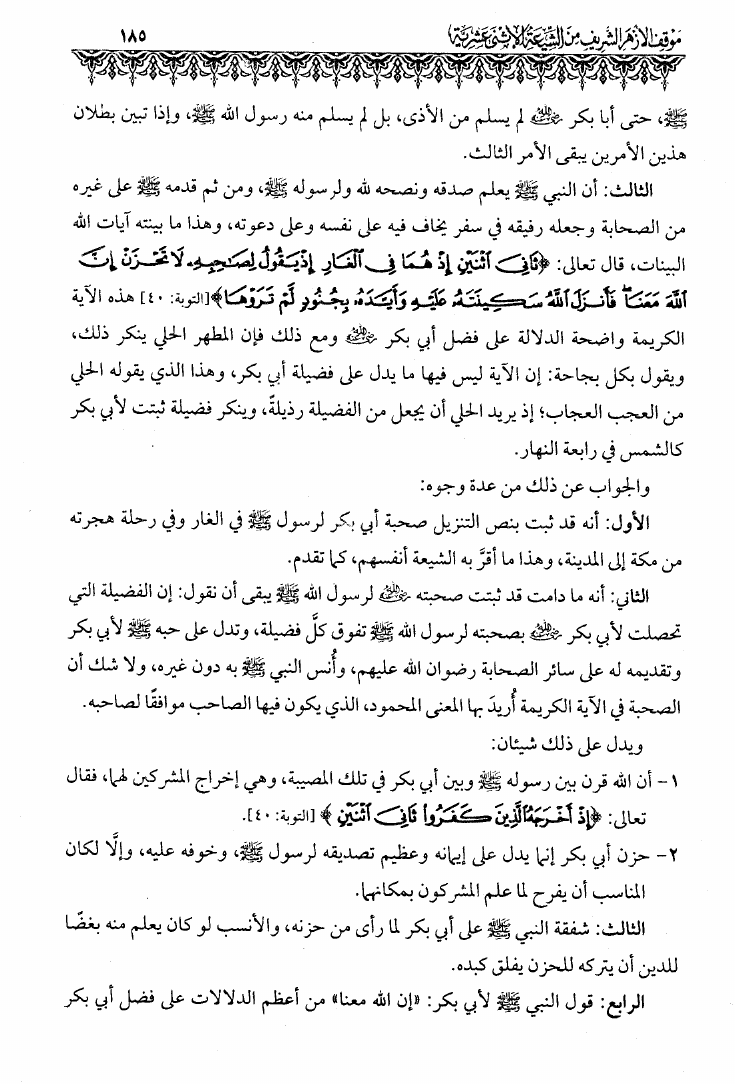 موقف الأزهر الشريف من الشيعة الاثنى عشرية ١٨٥
ﷺ، حتى أبا بكر رضي الله عنه لم يسلم من الأذى، بل لم يسلم منه رسول الله ﷺ، وإذا تبين بطلان
هذين الأمرين يبقى الأمر الثالث.
الثالث: أن النبي ﷺ يعلم صدقه ونصحه لله ولرسوله ﷺ، ومن ثم قدمه ﷺ على غيره
من الصحابة وجعله رفيقه في سفر يخاف فيه على نفسه وعلى دعوته، وهذا ما بينته آيات الله
البينات، قال تعالى: ﴿ثَانِيَ اثْنَيْنِ إِذْ هُمَا فِي الْغَارِ إِذْ يَقُولُ لِصَاحِبِهِ لَا تَحْزَنْ إِنَّ
اللَّهَ مَعَنَا فَأَنزَلَ اللَّهُ سَكِينَتَهُ عَلَيْهِ وَأَيَّدَهُ بِجُنُودٍ لَّمْ تَرَوْهَا﴾ [التوبة: ٤٠] هذه الآية
الكريمة واضحة الدلالة على فضل أبي بكر رضي الله عنه ومع ذلك فإن المطهر الحلي ينكر ذلك،
ويقول بكل بجاحة: إن الآية ليس فيها ما يدل على فضيلة أبي بكر، وهذا الذي يقوله الحلي
من العجب العجاب؛ إذ يريد الحلي أن يجعل من الفضيلة رذيلةً، وينكر فضيلة ثبتت لأبي بكر
كالشمس في رابعة النهار.
والجواب عن ذلك من عدة وجوه:
الأول: أنه قد ثبت بنص التنزيل صحبة أبي بكر لرسول ﷺ في الغار وفي رحلة هجرته
من مكة إلى المدينة، وهذا ما أقرَّ به الشيعة أنفسهم، كما تقدم.
الثاني: أنه ما دامت قد ثبتت صحبته رضي الله عنه لرسول الله ﷺ يبقى أن نقول: إن الفضيلة التي
تحصلت لأبي بكر رضي الله عنه بصحبته لرسول الله ﷺ تفوق كلَّ فضيلة، وتدل على حبه ﷺ لأبي بكر
وتقديمه له على سائر الصحابة رضوان الله عليهم، وأُنس النبي ﷺ به دون غيره، ولا شك أن
الصحبة في الآية الكريمة أُريدَ بها المعنى المحمود، الذي يكون فيها الصاحب موافقًا لصاحبه.
ويدل على ذلك شيئان:
١- أن الله قرن بين رسوله ﷺ وبين أبي بكر في تلك المصيبة، وهي إخراج المشركين لهما، فقال
تعالى: ﴿إِذْ أَخْرَجَهُ الَّذِينَ كَفَرُوا ثَانِيَ اثْنَيْنِ﴾ [التوبة: ٤٠].
٢- حزن أبي بكر إنما يدل على إيمانه وعظيم تصديقه لرسول ﷺ، وخوفه عليه، وإلَّا لكان
المناسب أن يفرح لما علم المشركون بمكانهما.
الثالث: شفقة النبي ﷺ على أبي بكر لما رأى من حزنه، والأنسب لو كان يعلم منه بغضًا
للدين أن يتركه للحزن يفلق كبده.
الرابع: قول النبي ﷺ لأبي بكر: «إن الله معنا» من أعظم الدلالات على فضل أبي بكر